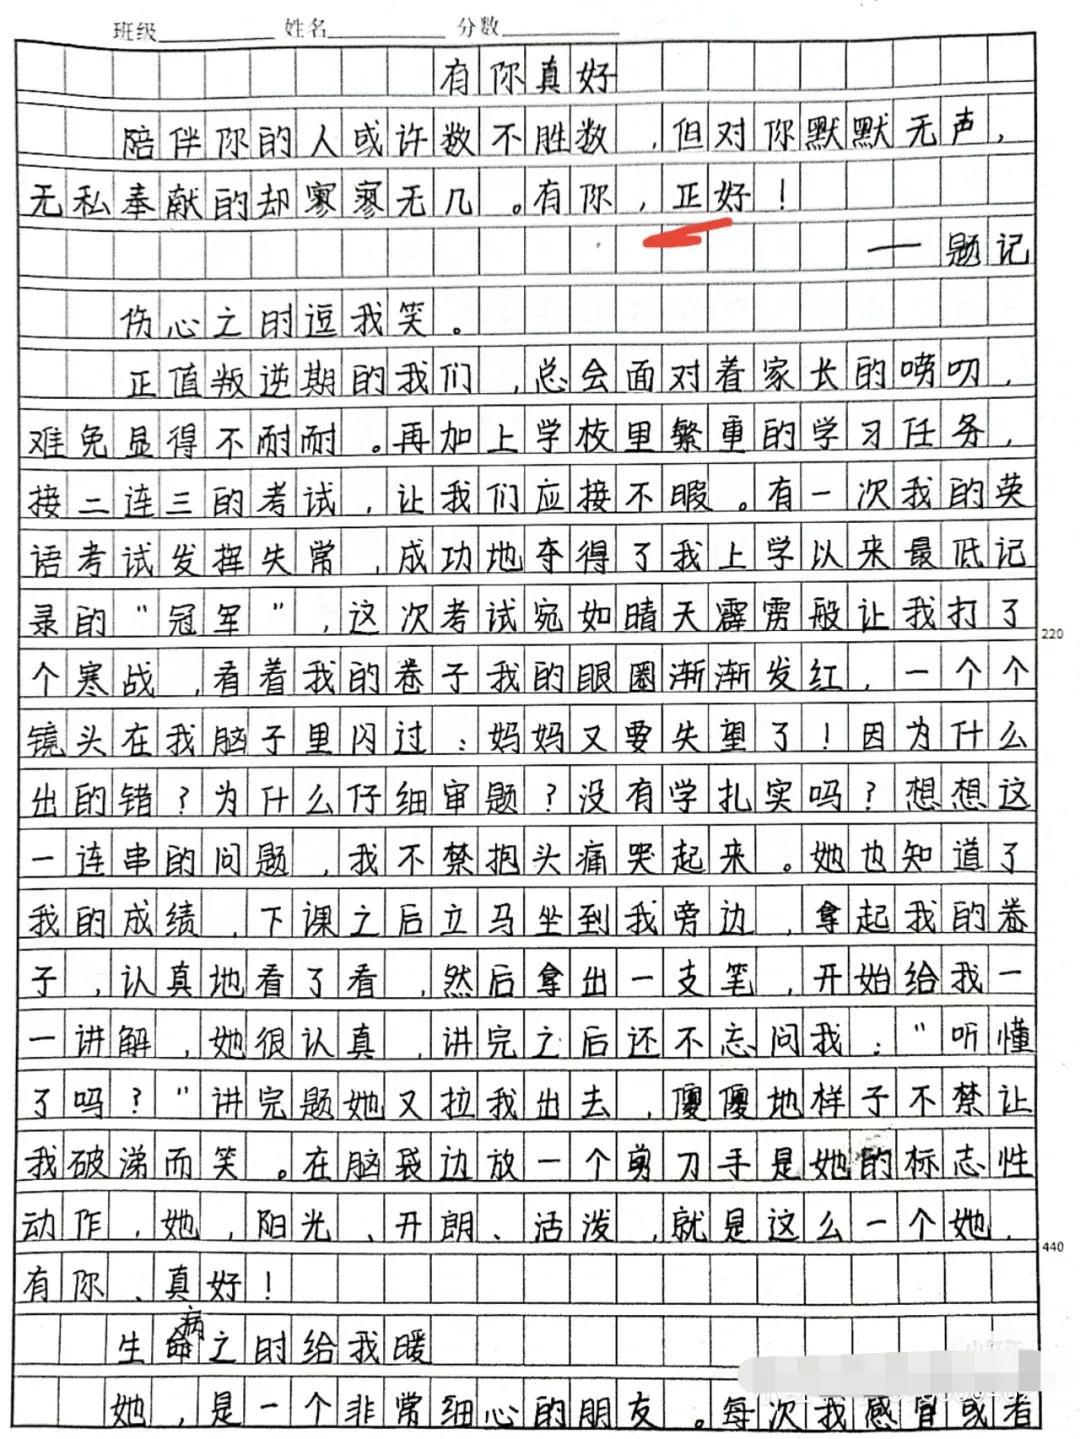 班级 姓名 分数
有你真好
陪伴你的人或许数不胜数，但对你默默无声，
无私奉献的却寥寥无几。有你，正好！
——题记
伤心之时逗我笑。
正值叛逆期的我们，总会面对着家长的唠叨，
难免显得不耐耐。再加上学校里繁重的学习任务，
接二连三的考试，让我们应接不暇。有一次我的英
语考试发挥失常，成功地夺得了我上学以来最低记
录的“冠军”，这次考试宛如晴天霹雳般让我打了
220
个寒战，看着我的卷子我的眼圈渐渐发红，一个个
镜头在我脑子里闪过：妈妈又要失望了！因为什么
出的错？为什么仔细审题？没有学扎实吗？想想这
一连串的问题，我不禁抱头痛哭起来。她也知道了
我的成绩，下课之后立马坐到我旁边，拿起我的卷
子，认真地看了看，然后拿出一支笔，开始给我一
一讲解，她很认真，讲完之后还不忘问我：“听懂
了吗？”讲完题她又拉我出去，傻傻地样子不禁让
我破涕而笑。在脑袋边放一个剪刀手是她的标志性
动作，她，阳光、开朗、活泼，就是这么一个她，
440
有你、真好！
生病之时给我暖
她，是一个非常细心的朋友。每次我感冒或者